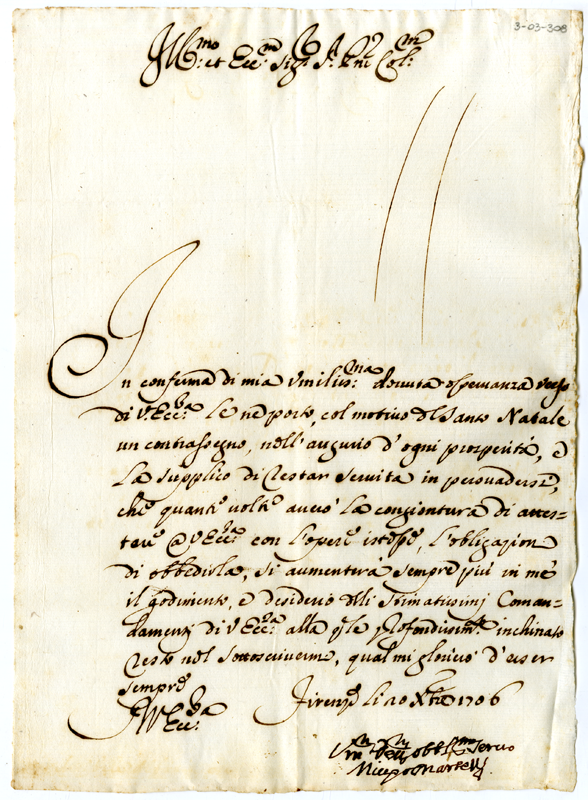 3-03-308
Ill:mo et Ecc:mo Sig:r Col:mo
In conferma di mia Vmiliss:ma douuta osseruanza verso
di V:Ecc:za Le ne porto, col motiuo del Santo Natale
un contrassegno, nell'augurio d'ogni prosperità, e
La supplico di restar seruita in persuadersi,
che quante volte auerò La congiontura di attes-
tare a V Ecc:za con l'opere istesse, L'obligazione
di obbedirla, si aumenterà sempre più in me
il godimento, e desiderio delli Stimatissimi Coman-
damenti di V Ecc:za alla q:le profondissim:te inchinato
resto nel sottoscriuerme, qual mi glorio d'esser
sempre
Firenze Li 20 Xbre 1706
Di V Ecc:za
Vm:mo Deu:mo Obb:mo Seruo